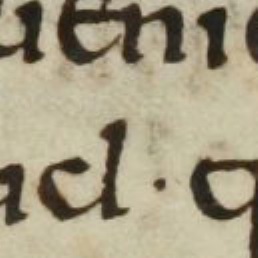 ueni
ad · q